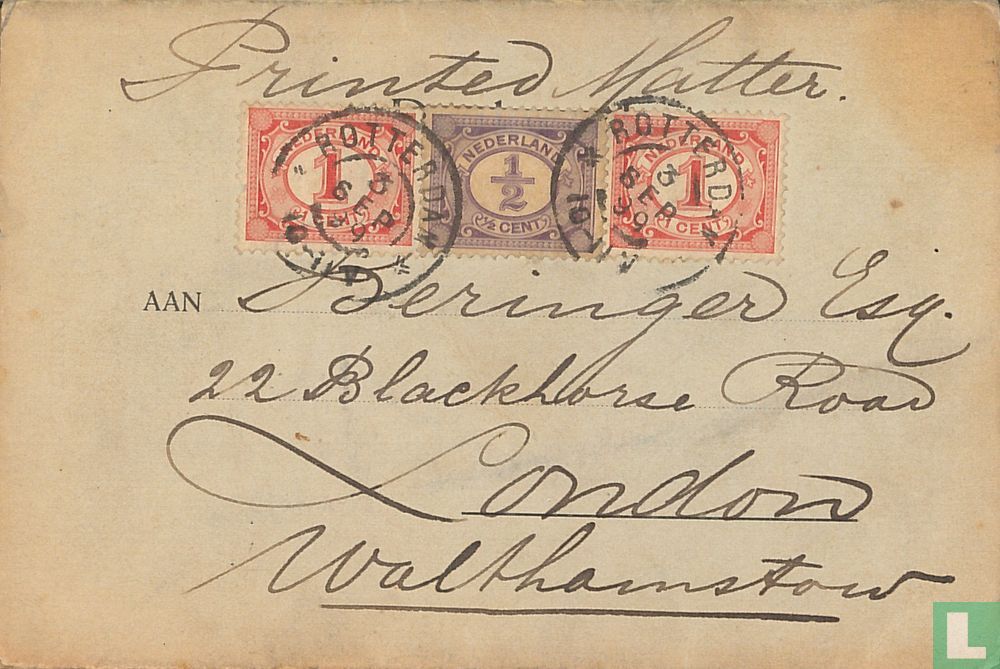 Printed Matter.
NEDERLAND
1
1 CENT
NEDERLAND
1/2
1/2 CENT
NEDERLAND
1
1 CENT
ROTTERDAM
3 SEP
ROTTERDAM
3 SEP
AAN Beringer Esq.
22 Blackhorse Road
London
Walthamstow
L